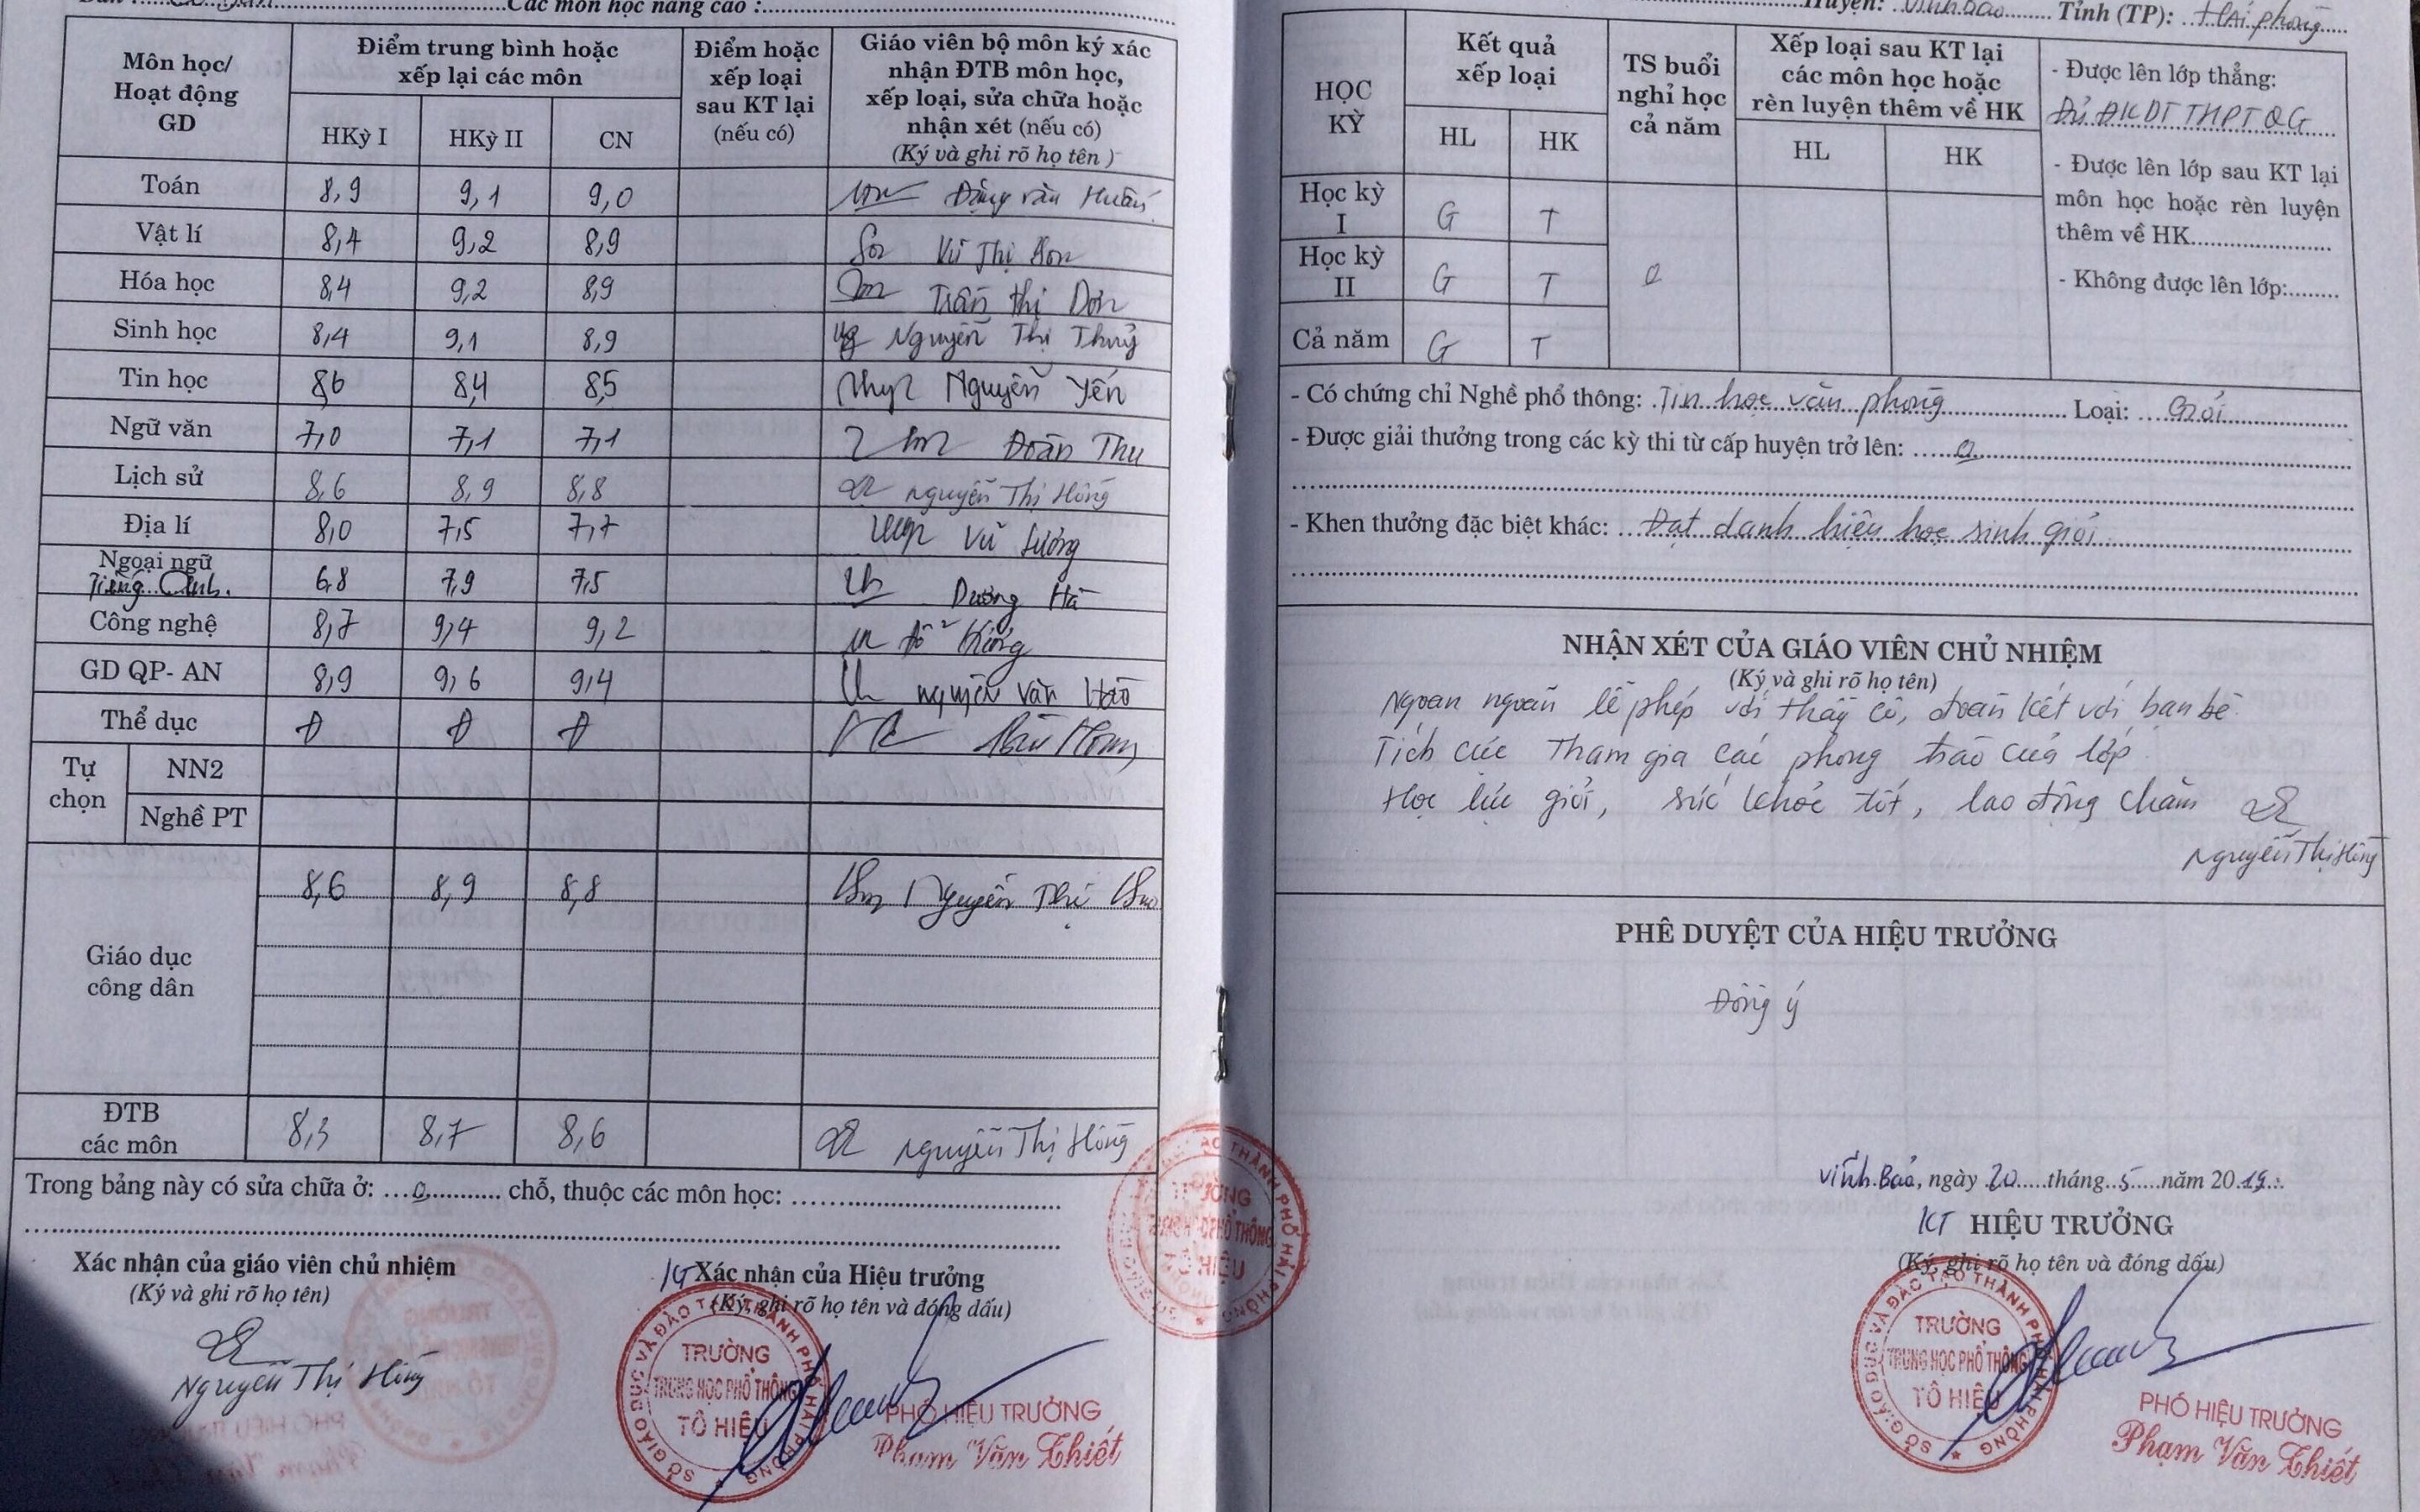 Các môn học nâng cao :
Môn học/ Hoạt động GD
Điểm trung bình hoặc xếp lại các môn
Điểm hoặc xếp loại sau KT lại (nếu có)
Giáo viên bộ môn ký xác nhận ĐTB môn học, xếp loại, sửa chữa hoặc nhận xét (nếu có) (Ký và ghi rõ họ tên )
HKỳ I HKỳ II CN
Toán 8,9 9,1 9,0 Đặng văn Huấn
Vật lí 8,4 9,2 8,9 Vũ Thị
Hóa học 8,4 9,2 8,9 Trần thị Dơn
Sinh học 8,4 9,1 8,9 Nguyễn Thị Thuỷ
Tin học 8,6 8,4 8,5 Nguyễn Yến
Ngữ văn 7,0 7,1 7,1 Đoàn Thu
Lịch sử 8,6 8,9 8,8 Nguyễn Thị Hồng
Địa lí 8,0 7,5 7,7 Vũ Lương
Ngoại ngữ Tiếng Anh. 6,8 7,9 7,5 Dương Hà
Công nghệ 8,7 9,4 9,2
GD QP- AN 8,9 9,6 9,4 nguyễn văn Hào
Thể dục Đ Đ Đ
Tự chọn
NN2
Nghề PT
Giáo dục công dân 8,6 8,9 8,8 Nguyễn Thị
ĐTB các môn 8,3 8,7 8,6 Nguyễn Thị Hồng
Trong bảng này có sửa chữa ở: 0 chỗ, thuộc các môn học:
Xác nhận của giáo viên chủ nhiệm
(Ký và ghi rõ họ tên)
Nguyễn Thị Hồng
KT Xác nhận của Hiệu trưởng
(Ký, ghi rõ họ tên và đóng dấu)
SỞ GIÁO DỤC VÀ ĐÀO TẠO THÀNH PHỐ HẢI PHÒNG
TRƯỜNG
TRUNG HỌC PHỔ THÔNG
TÔ HIỆU
PHÓ HIỆU TRƯỞNG
Phạm Văn Thiết
Huyện: Vĩnh Bảo Tỉnh (TP): Hải phòng
HỌC KỲ
Kết quả xếp loại
TS buổi nghỉ học cả năm
Xếp loại sau KT lại các môn học hoặc rèn luyện thêm về HK
HL HK HL HK
Học kỳ I G T
Học kỳ II G T 0
Cả năm G T
- Được lên lớp thẳng:
Đủ ĐKDT THPT QG
- Được lên lớp sau KT lại
môn học hoặc rèn luyện
thêm về HK
- Không được lên lớp:
- Có chứng chỉ Nghề phổ thông: Tin học văn phòng Loại: Giỏi
- Được giải thưởng trong các kỳ thi từ cấp huyện trở lên: 0
- Khen thưởng đặc biệt khác: Đạt danh hiệu học sinh giỏi
NHẬN XÉT CỦA GIÁO VIÊN CHỦ NHIỆM
(Ký và ghi rõ họ tên)
Ngoan ngoãn lễ phép với thầy cô, đoàn kết với bạn bè
Tích cực Tham gia các phong trào của lớp
Học lực giỏi, sức khỏe tốt, lao động chăm
Nguyễn Thị Hồng
PHÊ DUYỆT CỦA HIỆU TRƯỞNG
Đồng ý
Vĩnh Bảo, ngày 20 tháng 5 năm 2019
KT HIỆU TRƯỞNG
(Ký, ghi rõ họ tên và đóng dấu)
SỞ GIÁO DỤC VÀ ĐÀO TẠO THÀNH PHỐ HẢI PHÒNG
TRƯỜNG
TRUNG HỌC PHỔ THÔNG
TÔ HIỆU
PHÓ HIỆU TRƯỞNG
Phạm Văn Thiết